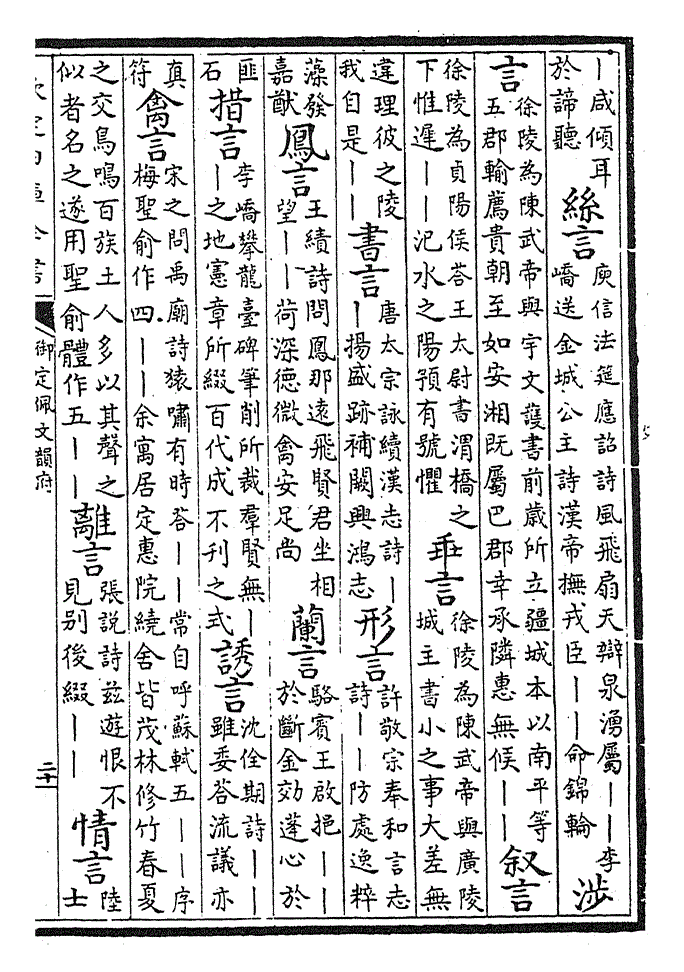 丨咸傾耳
於諦聽
絲言
庾信法筵應詔詩風飛扇天辯泉湧屬丨丨李
嶠送金城公主詩漢帝撫戎臣丨丨命錦輪
涉
言
徐陵為陳武帝與宇文護書前歲所立疆城本以南平等
五郡輸薦貴朝至如安湘既屬巴郡幸承隣惠無俟丨丨
叙言
徐陵為貞陽侯荅王太尉書渭橋之
下惟遲丨丨汜水之陽預有號懼
垂言
徐陵為陳武帝與廣陵
城主書小之事大差無
違理彼之陵
我自是丨丨
書言
唐太宗詠續漢志詩丨
丨揚盛跡補闕興鴻志
形言
許敬宗奉和言志
詩丨丨防處逸粹
藻發
嘉猷
鳳言
王績詩問鳳那遠飛賢君坐相
望丨丨荷深德微禽安足尚
蘭言
駱賓王啟挹丨丨
於斷金効蓬心於
匪
石
措言
李嶠攀龍臺碑筆削所裁羣賢無丨
丨之地憲章所綴百代成不刋之式
誘言
沈佺期詩丨丨
雖委荅流議亦
真
符
禽言
宋之問禹廟詩猿嘯有時荅丨丨常自呼蘇軾五丨丨序
梅聖俞作四丨丨余寓居定惠院繞舍皆茂林修竹春夏
之交鳥鳴百族土人多以其聲之
似者名之遂用聖俞體作五丨丨
離言
張説詩兹遊恨不
見别後綴丨丨
情言
陸
士
欽定四庫全書
御定佩文韻府
二十